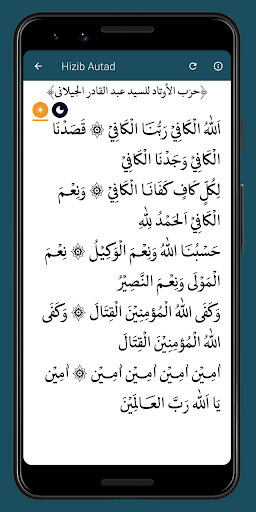 Hizib Autad
﴿حزب الأوتاد للسيد عبد القادر الجيلاني﴾
اَللهُ الْكَافِيْ رَبُّنَا الْكَافِيْ ۞ قَصَدْنَا
الْكَافِيْ وَجَدْنَا الْكَافِيْ
لِكُلٍّ كَافٍ كَفَانَا الْكَافِيْ ۞ وَنِعْمَ
الْكَافِيْ اَلْحَمْدُ لِلهِ
حَسْبُنَا اللهُ وَنِعْمَ الْوَكِيْلُ ۞ نِعْمَ
الْمَوْلَى وَنِعْمَ النَّصِيْرُ
وَكَفَى اللهُ الْمُؤْمِنِيْنَ الْقِتَالَ ۞ وَكَفَى
اللهُ الْمُؤْمِنِيْنَ الْقِتَالَ
اٰمِيْن اٰمِيْن اٰمِيْن اٰمِيْن ۞ اٰمِيْن
يَا اَلله رَبَّ الْعَـالَمِيْنَ